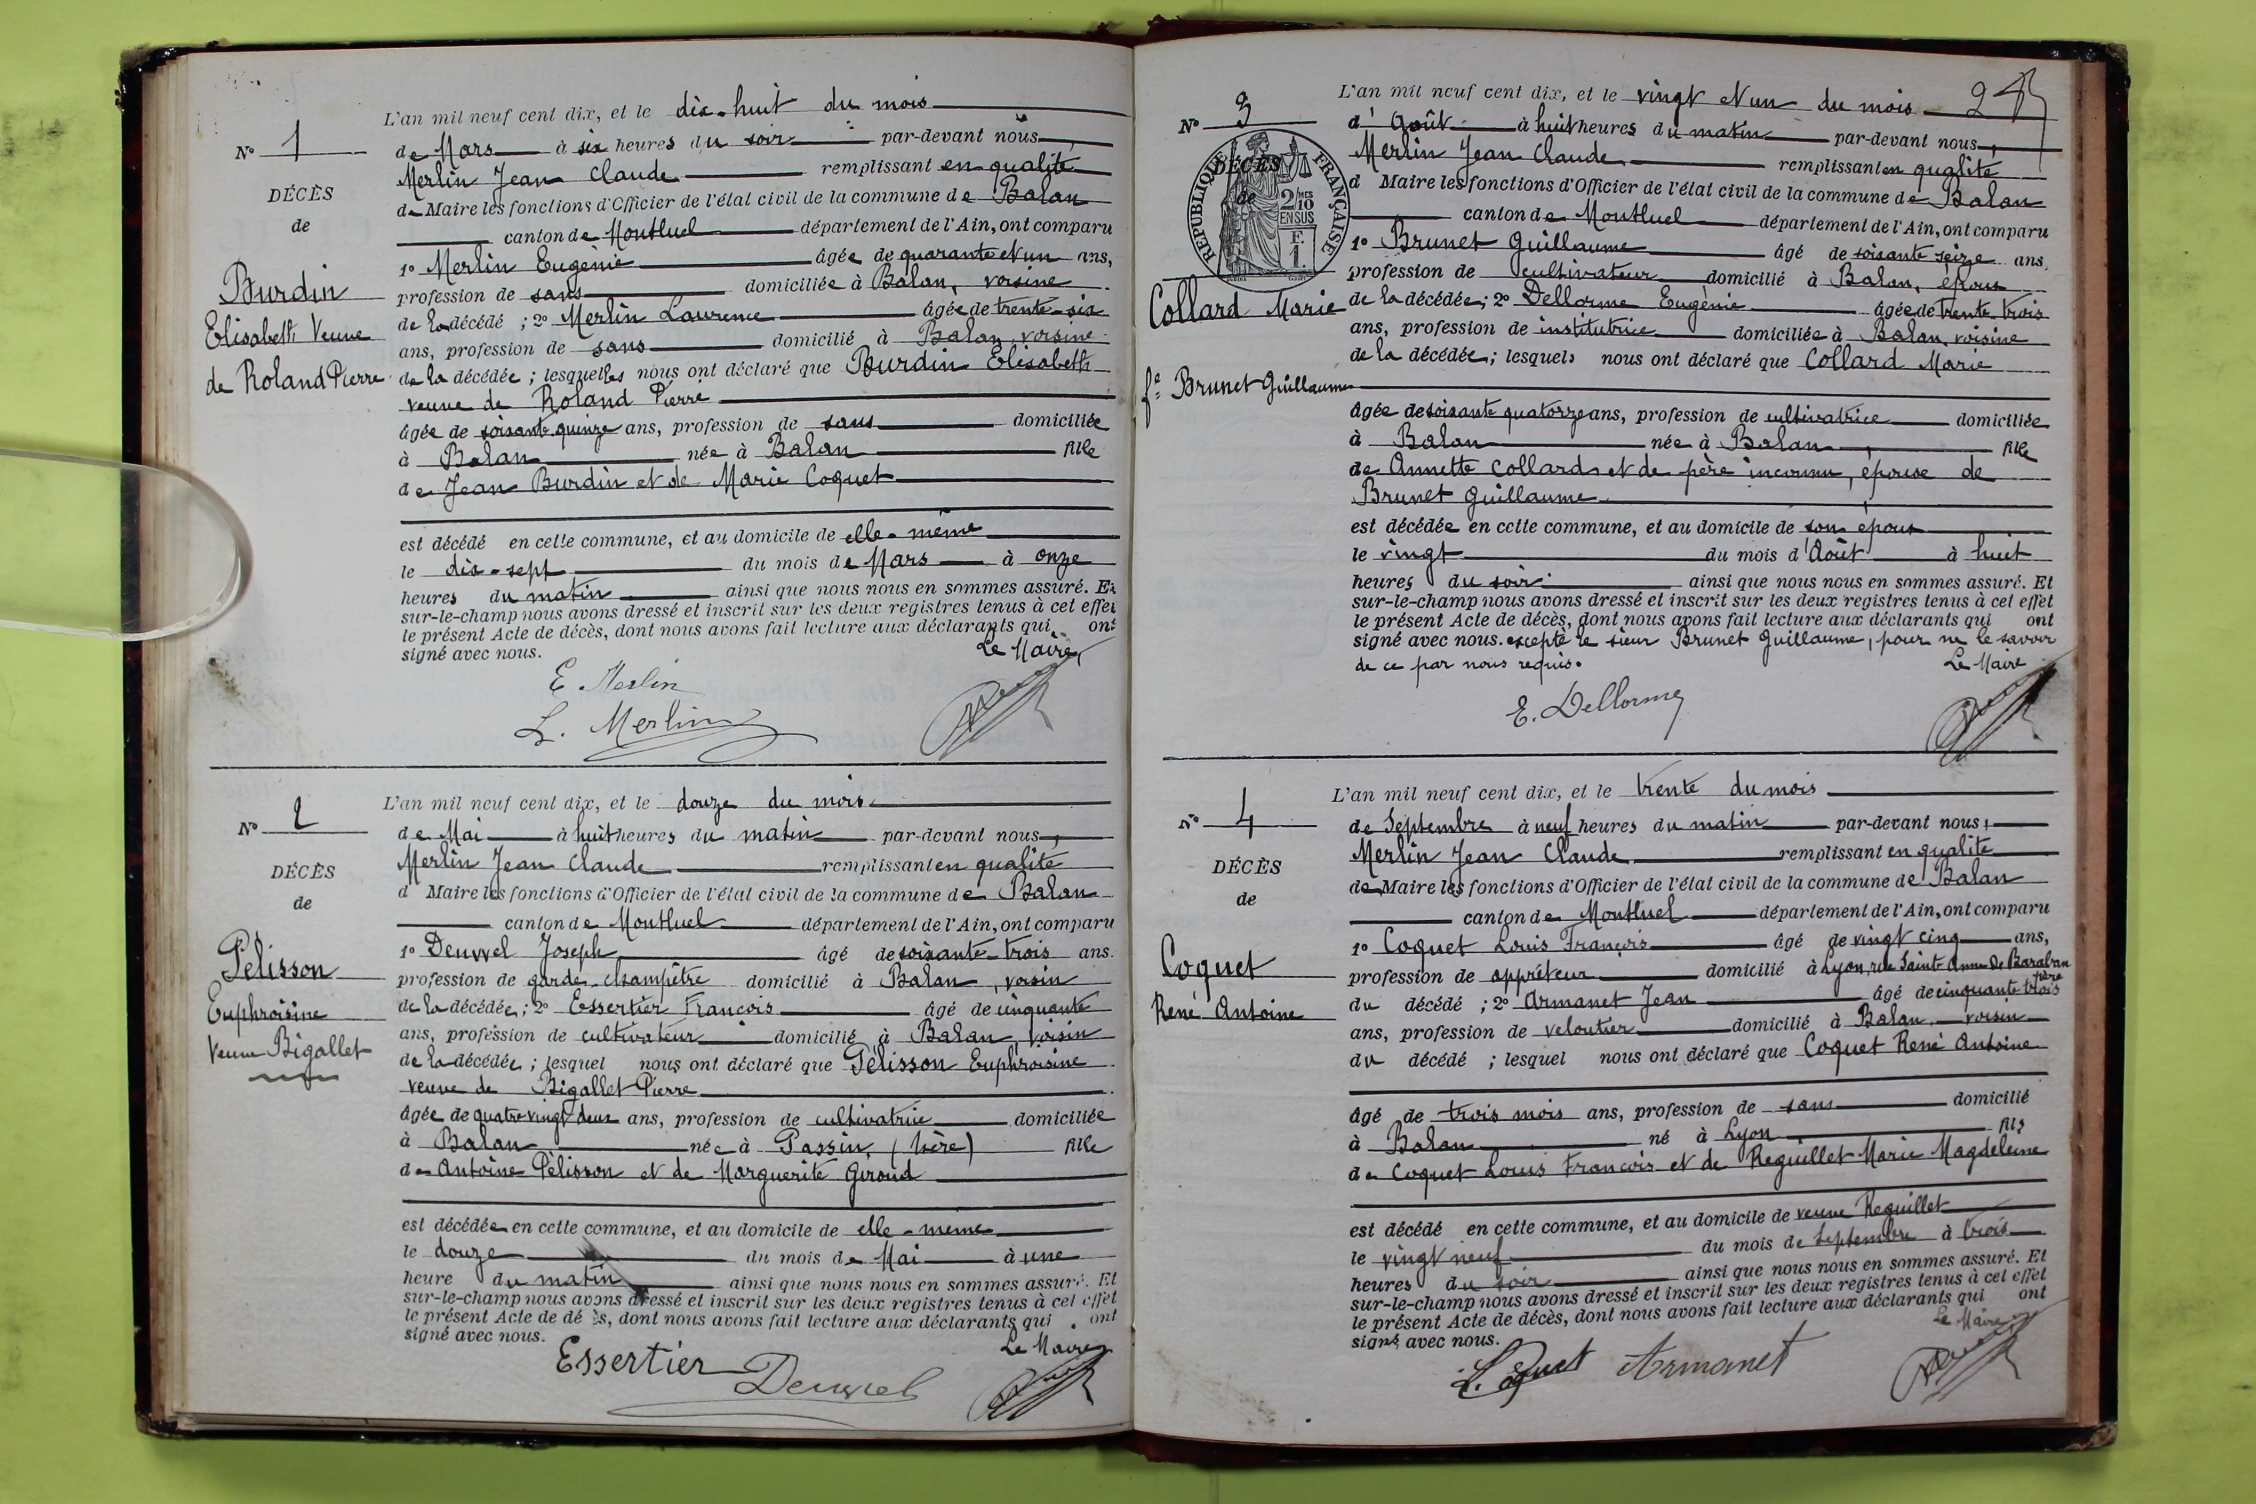 L'an mil neuf cent dix, et le dix-huit du mois
No 1
de Mars à six heures du soir par-devant nous
Merlin Jean Claude remplissant en qualité
DÉCÈS
de Maire les fonctions d'Officier de l'état civil de la commune de Balan
de
canton de Montluel département de l'Ain, ont comparu
1o Merlin Eugénie âgée de quarante et un ans,
Burdin
profession de sans domiciliée à Balan, voisine
Elisabeth Veuve
de la décédé ; 2o Merlin Laurence âgée de trente-six
ans, profession de sans domicilié à Balan, voisine
de Roland Pierre
de la décédée ; lesquelles nous ont déclaré que Burdin Elisabeth
veuve de Roland Pierre
âgée de soixante quinze ans, profession de sans domiciliée
à Balan née à Balan fille
de Jean Burdin et de Marie Coquet
est décédé en cette commune, et au domicile de elle-même
le dix-sept du mois de Mars à onze
heures du matin ainsi que nous nous en sommes assuré. Et
sur-le-champ nous avons dressé et inscrit sur les deux registres tenus à cet effet
le présent Acte de décès, dont nous avons fait lecture aux déclarants qui ont
signé avec nous.
Le Maire,
E. Merlin
L. Merlin
L'an mil neuf cent dix, et le douze du mois
No 2
de Mai à huit heures du matin par-devant nous,
Merlin Jean Claude remplissant en qualité
DÉCÈS
d Maire les fonctions d'Officier de l'état civil de la commune de Balan
de
canton de Montluel département de l'Ain, ont comparu
1o Deuvvel Joseph âgé de soixante-trois ans.
Pélisson
profession de garde-champêtre domicilié à Balan, voisin
Euphroisine
de la décédée ; 2o Essertier François âgé de cinquante
ans, profession de cultivateur domicilié à Balan, voisin
Veuve Bigallet
de la décédée ; lesquel nous ont déclaré que Pélisson Euphroisine
veuve de Bigallet Pierre
âgée de quatre vingt deux ans, profession de cultivatrice domiciliée
à Balan née à Passin, (Isère) fille
de Antoine Pélisson et de Marguerite Giroud
est décédée en cette commune, et au domicile de elle-même
le douze du mois de Mai à une
heure du matin ainsi que nous nous en sommes assuré. Et
sur-le-champ nous avons dressé et inscrit sur les deux registres tenus à cet effet
le présent Acte de dé ès, dont nous avons fait lecture aux déclarants qui ont
signé avec nous.
Le Maire
Essertier
Deuvvel
L'an mil neuf cent dix, et le vingt et un du mois
No 3
d'Août à huit heures du matin par-devant nous,
Merlin Jean Claude remplissant en qualité
DÉCÈS
de
RÉPUBLIQUE FRANÇAISE
2/10 MES EN SUS
F. 1.
d Maire les fonctions d'Officier de l'état civil de la commune de Balan
canton de Montluel département de l'Ain, ont comparu
1o Brunet Guillaume âgé de soixante seize ans.
profession de cultivateur domicilié à Balan, époux
Collard Marie
de la décédée ; 2o Dellorme Eugénie âgée de trente trois
ans, profession de institutrice domiciliée à Balan, voisine
de la décédée ; lesquels nous ont déclaré que Collard Marie
fe Brunet Guillaume
âgée de soixante quatorze ans, profession de cultivatrice domiciliée
à Balan née à Balan, fille
de Annette Collard et de père inconnu, épouse de
Brunet Guillaume
est décédée en cette commune, et au domicile de son époux
le vingt du mois d'Août à huit
heures du soir ainsi que nous nous en sommes assuré. Et
sur-le-champ nous avons dressé et inscrit sur les deux registres tenus à cet effet
le présent Acte de décès, dont nous avons fait lecture aux déclarants qui ont
signé avec nous. excepté le sieur Brunet Guillaume, pour ne le savoir
de ce par nous requis.
Le Maire
E. Dellorme
L'an mil neuf cent dix, et le trente du mois
No 4
de Septembre à neuf heures du matin par-devant nous,
Merlin Jean Claude remplissant en qualité
DÉCÈS
de Maire les fonctions d'Officier de l'état civil de la commune de Balan
de
canton de Montluel département de l'Ain, ont comparu
1o Coquet Louis François âgé de vingt cinq ans,
Coquet
profession de apprêteur domicilié à Lyon, rue Saint Anne de Baraban père
René Antoine
du décédé ; 2o Armanet Jean âgé de cinquante trois
ans, profession de veloutier domicilié à Balan, voisin
du décédé ; lesquel nous ont déclaré que Coquet René Antoine
âgé de trois mois ans, profession de sans domicilié
à Balan né à Lyon fils
de Coquet Louis François et de Reguillet Marie Magdeleine
est décédé en cette commune, et au domicile de veuve Reguillet
le vingt neuf du mois de Septembre à trois
heures du soir ainsi que nous nous en sommes assuré. Et
sur-le-champ nous avons dressé et inscrit sur les deux registres tenus à cet effet
le présent Acte de décès, dont nous avons fait lecture aux déclarants qui ont
signé avec nous.
Le Maire
L. Coquet Armanet